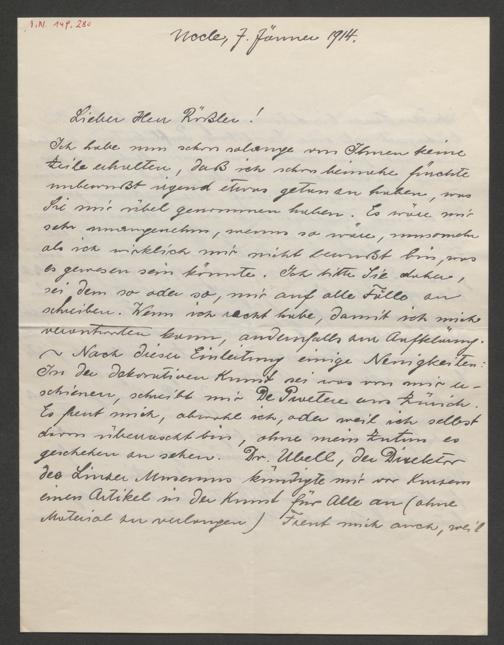 I.N. 149.280
Wocle, 7. Jänner 1914.
Lieber Herr Rößler!
Ich habe nun schon solange von Ihnen keine
Zeile erhalten, daß ich schon beinahe fürchte
unbewußt irgend etwas getan zu haben, was
Sie mir übel genommen haben. Es wäre mir
sehr unangenehm, wenns so wäre, umsomehr
als ich wirklich mir nicht bewußt bin, was
es gewesen sein könnte. Ich bitte Sie daher,
sei dem so oder so, mir auf alle Fälle zu
schreiben. Wenn ich recht habe, damit ich mich
verantworten kann, andernfalls zur Aufklärung.
~ Nach dieser Einleitung einige Neuigkeiten:
In der dekorativen Kunst sei was von mir er-
schienen, schreibt mir De Praetere aus Zürich.
Es freut mich, obwohl ich, oder weil ich selbst
davon überrascht bin, ohne mein Zutun es
geschehen zu sehen. Dr. Ubell, der Direktor
des Linzer Museums kündigte mir vor Kurzem
einen Artikel in der Kunst für Alle an (ohne
Material zu verlangen) Freut mich auch, weil